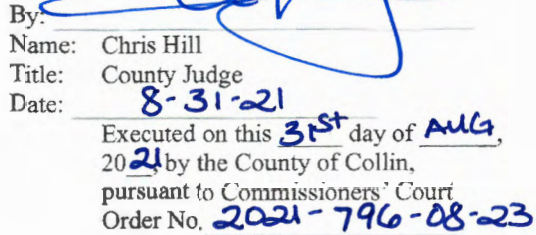 By:
Name: Chris Hill
Title: County Judge
Date: 8-31-21
Executed on this 31st day of AUG,
2021, by the County of Collin,
pursuant to Commissioners' Court
Order No. 2021-796-08-23